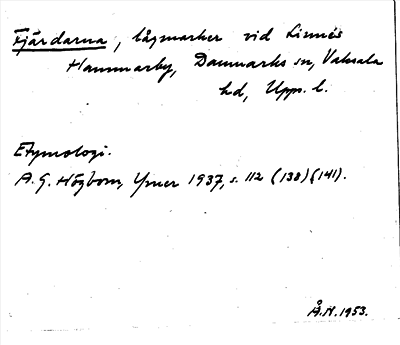 Fjärdarna, lågmarker vid Linnés
Hammarby, Danmarks sn, Vaksala
hd, Upps. l.
Etymologi.
A. G. Högbom, Ymer 1937, s. 112 (138) (141).
Å.H. 1953.